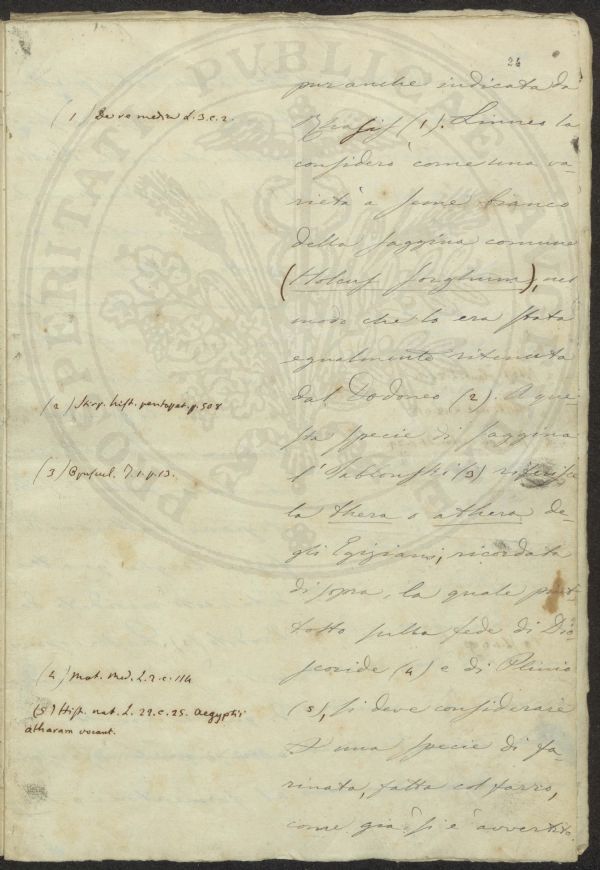 26
pur anche indicata da
(1). Linneo la
considerò come una va-
rietà a seme bianco
della saggina comune
(Holcus Sorghum), nel
modo che lo era stata
egualmente ritenuta
dal Dodoneo (2). A que-
sta specie di saggina
l'Jablonski (3) riferisce
la thera o athera de-
gli Egiziani, ricordata
di sopra, la quale piut-
tosto sulla fede di Dio-
scoride (4) e di Plinio
(5), si deve considerare
una specie di fa-
rinata, fatta col farro,
come già si è avvertito.
(1) De re medica L. 3. c. 2.
(2) Stirp. hist. pemptad. p. 508
(3) Opuscul. T. 1. p. 13.
(4) Mat. Med. L. 2. c. 114
(5) Hist. nat. L. 22. c. 25. Aegyptii
atharam vocant.
PROSPERITATI PUBLICAE AUGENDAE